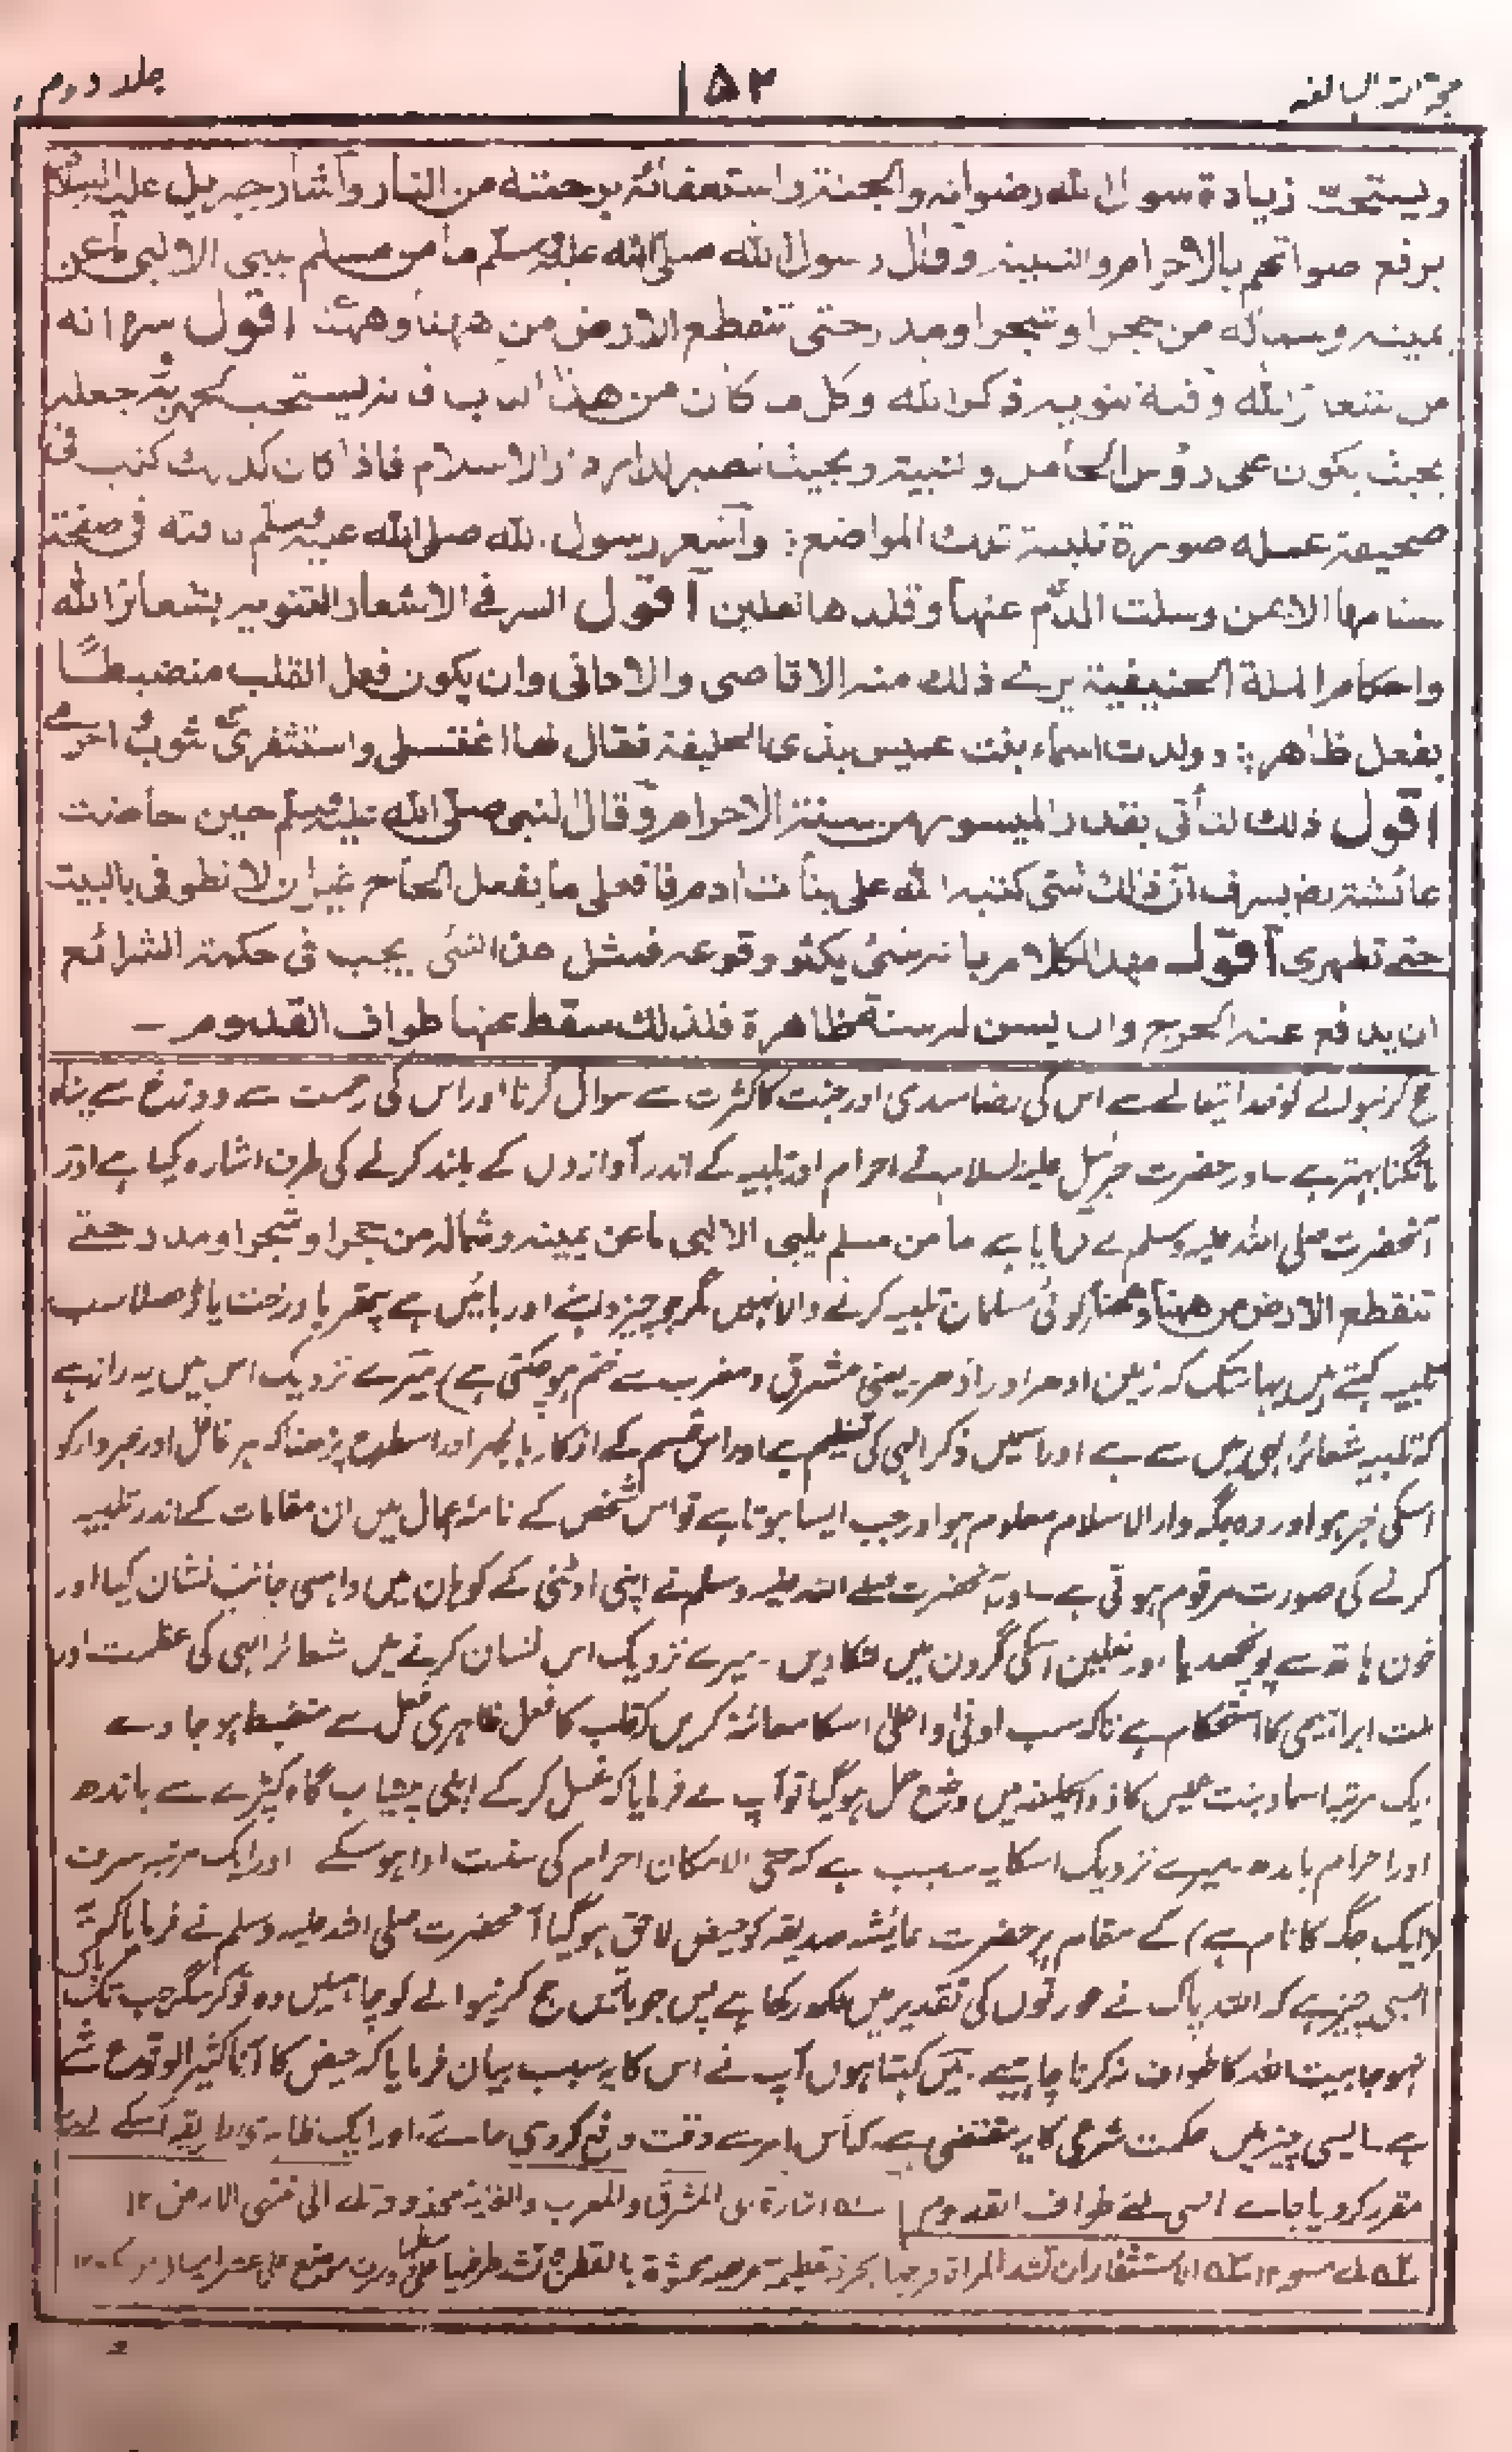 حجۃ اللہ البالغہ ۱۵۲ جلد دوم
ويستحب زيادة سواله الله رضوانه والجنة واستعفائه برحمته من النار وأشار جبريل عليه السلام
برفع اصواتهم بالاحرام والتلبية وقال رسول الله صلى الله عليه وسلم ما من مسلم يلبي الا لبى ما عن
يمينه وشماله من حجر او شجر او مدر حتى تنقطع الارض من ههنا وههنا اقول سره انه
من شعائر الله وفيه تنويه ذكر الله وكل ما كان من هذا الباب فانه يستحب الجهر به وجعله
بحيث يكون على رؤس الخامل والنبيه وبحيث تصير الدار دار الاسلام فاذا كان كذلك كتب في
صحيفة عمله صورة تلبية تلك المواضع : وأشعر رسول الله صلى الله عليه وسلم ناقته في صفحة
سنامها الايمن وسلت الدم عنها وقلدها نعلين أقول السر في الاشعار التنويه بشعائر الله
واحكام الملة الحنيفية يرى ذلك منه الاقاصي والاداني وان يكون فعل القلب منضبطًا
بفعل ظاهر : وولدت اسماء بنت عميس بذى الحليفة فقال لها اغتسلى واستثفرى بثوب واحرمي
اقول ذلك لتأتى بقدر الميسور من سنة الاحرام وقال النبي صلى الله عليه وسلم حين حاضت
عائشة رض بسرف ان ذلك شئ كتبه الله على بنات ادم فافعلى ما يفعل الحاج غير ان لا تطوفى بالبيت
حتى تطهرى أقول مهد الكلام بانه شئ يكثر وقوعه فمثل هذا الشئ يجب فى حكمة الشرائع
ان يدفع عنه الحرج وان يسن له سنة ظاهرة فلذلك سقط عنها طواف القدوم ـ
حج کرنیوالے کو خدا تعالےٰ سے اس کی رضامندی اور جنت کا کثرت سے سوال کرنا اور اس کی رحمت سے دوزخ سے پناہ
مانگنا بہتر ہے۔ اور حضرت جبرئیل علیہ السلام نے احرام اور تلبیہ کے اندر آوازوں کے بلند کرنے کی طرف اشارہ کیا ہے اور
آنحضرت صلی اللہ علیہ وسلم نے فرمایا ہے ما من مسلم یلبی الا لبی ما عن یمینہ وشمالہ من حجر او شجر او مدر حتے
تنقطع الارض من ھھنا وھھنا (کوئی مسلمان تلبیہ کرنے والا نہیں مگر جو چیز داہنے اور بائیں ہے پتھر یا درخت یا ڈھیلا سب
تلبیہ کہتے ہیں یہانتک کہ زمین ادھر اور ادھر یعنی مشرق و مغرب سے ختم ہو چکتی ہے) میرے نزدیک اس میں یہ راز ہے
کہ تلبیہ شعائر الٰہی میں سے ہے اور اسمیں ذکر الٰہی کی تعظیم ہے اور اس قسم کے اذکار بالجہر اور اسطرح پڑھنا کہ ہر غافل اور خبردار کو
اسکی خبر ہو اور وہ جگہ دار الاسلام معلوم ہو اور جب ایسا ہوتا ہے تو اس شخص کے نامہ اعمال میں ان مقامات کے اندر تلبیہ
کرنے کی صورت مرقوم ہوتی ہے۔ اور آنحضرت صلے اللہ علیہ وسلم نے اپنی اونٹنی کے کوہان میں داہنی جانب نشان کیا اور
خون ہاتھ سے پونچھ دیا اور نعلین اسکی گردن میں لٹکا دیں۔ میرے نزدیک اس نشان کرنے میں شعائر الٰہی کی عظمت اور
ملت ابراہیمی کا استحکام ہے تاکہ سب ادنیٰ و اعلیٰ اسکا معائنہ کریں کہ قلب کا فعل ظاہری فعل سے منضبط ہو جاوے
ایک مرتبہ اسماء بنت عمیس کا ذوالحلیفہ میں وضع حمل ہو گیا تو آپ نے فرمایا کہ غسل کر کے اپنی پیشاب گاہ کپڑے سے باندھ
اور احرام باندھ۔ میرے نزدیک اسکا یہ سبب ہے کہ حتی الامکان احرام کی سنت ادا ہو سکے اور ایک مرتبہ سرف
(ایک جگہ کا نام ہے) کے مقام پر حضرت عائشہ صدیقہ کو حیض لاحق ہو گیا آنحضرت صلی اللہ علیہ وسلم نے فرمایا کہ یہ
ایسی چیز ہے کہ اللہ پاک نے عورتوں کی تقدیر میں لکھ رکھا ہے پس جو باتیں حج کرنیوالے کو چاہئیں وہ تو کر مگر جب تک پاک
نہو جا بیت اللہ کا طواف نہ کرنا چاہیے۔ میں کہتا ہوں آپ نے اس کا یہ سبب بیان فرمایا کہ حیض کا آنا کثیر الوقوع شے
ہے۔ ایسی چیز میں حکمت شرعی کا یہ مقتضی ہے کہ اس امر سے دقت دفع کر دی جائے اور ایک ظاہری طریقہ اسکے لئے
مقرر کر دیا جاے اسی لئے طواف القدوم ؎ اشارۃ الی المشرق والمغرب والغایۃ محذوفۃ ای الی منتہی الارض ۱۲
الاستثفار ان تشد المراة فرجها بخرقة عريضة محشوة بالقطن تشد طرفيها